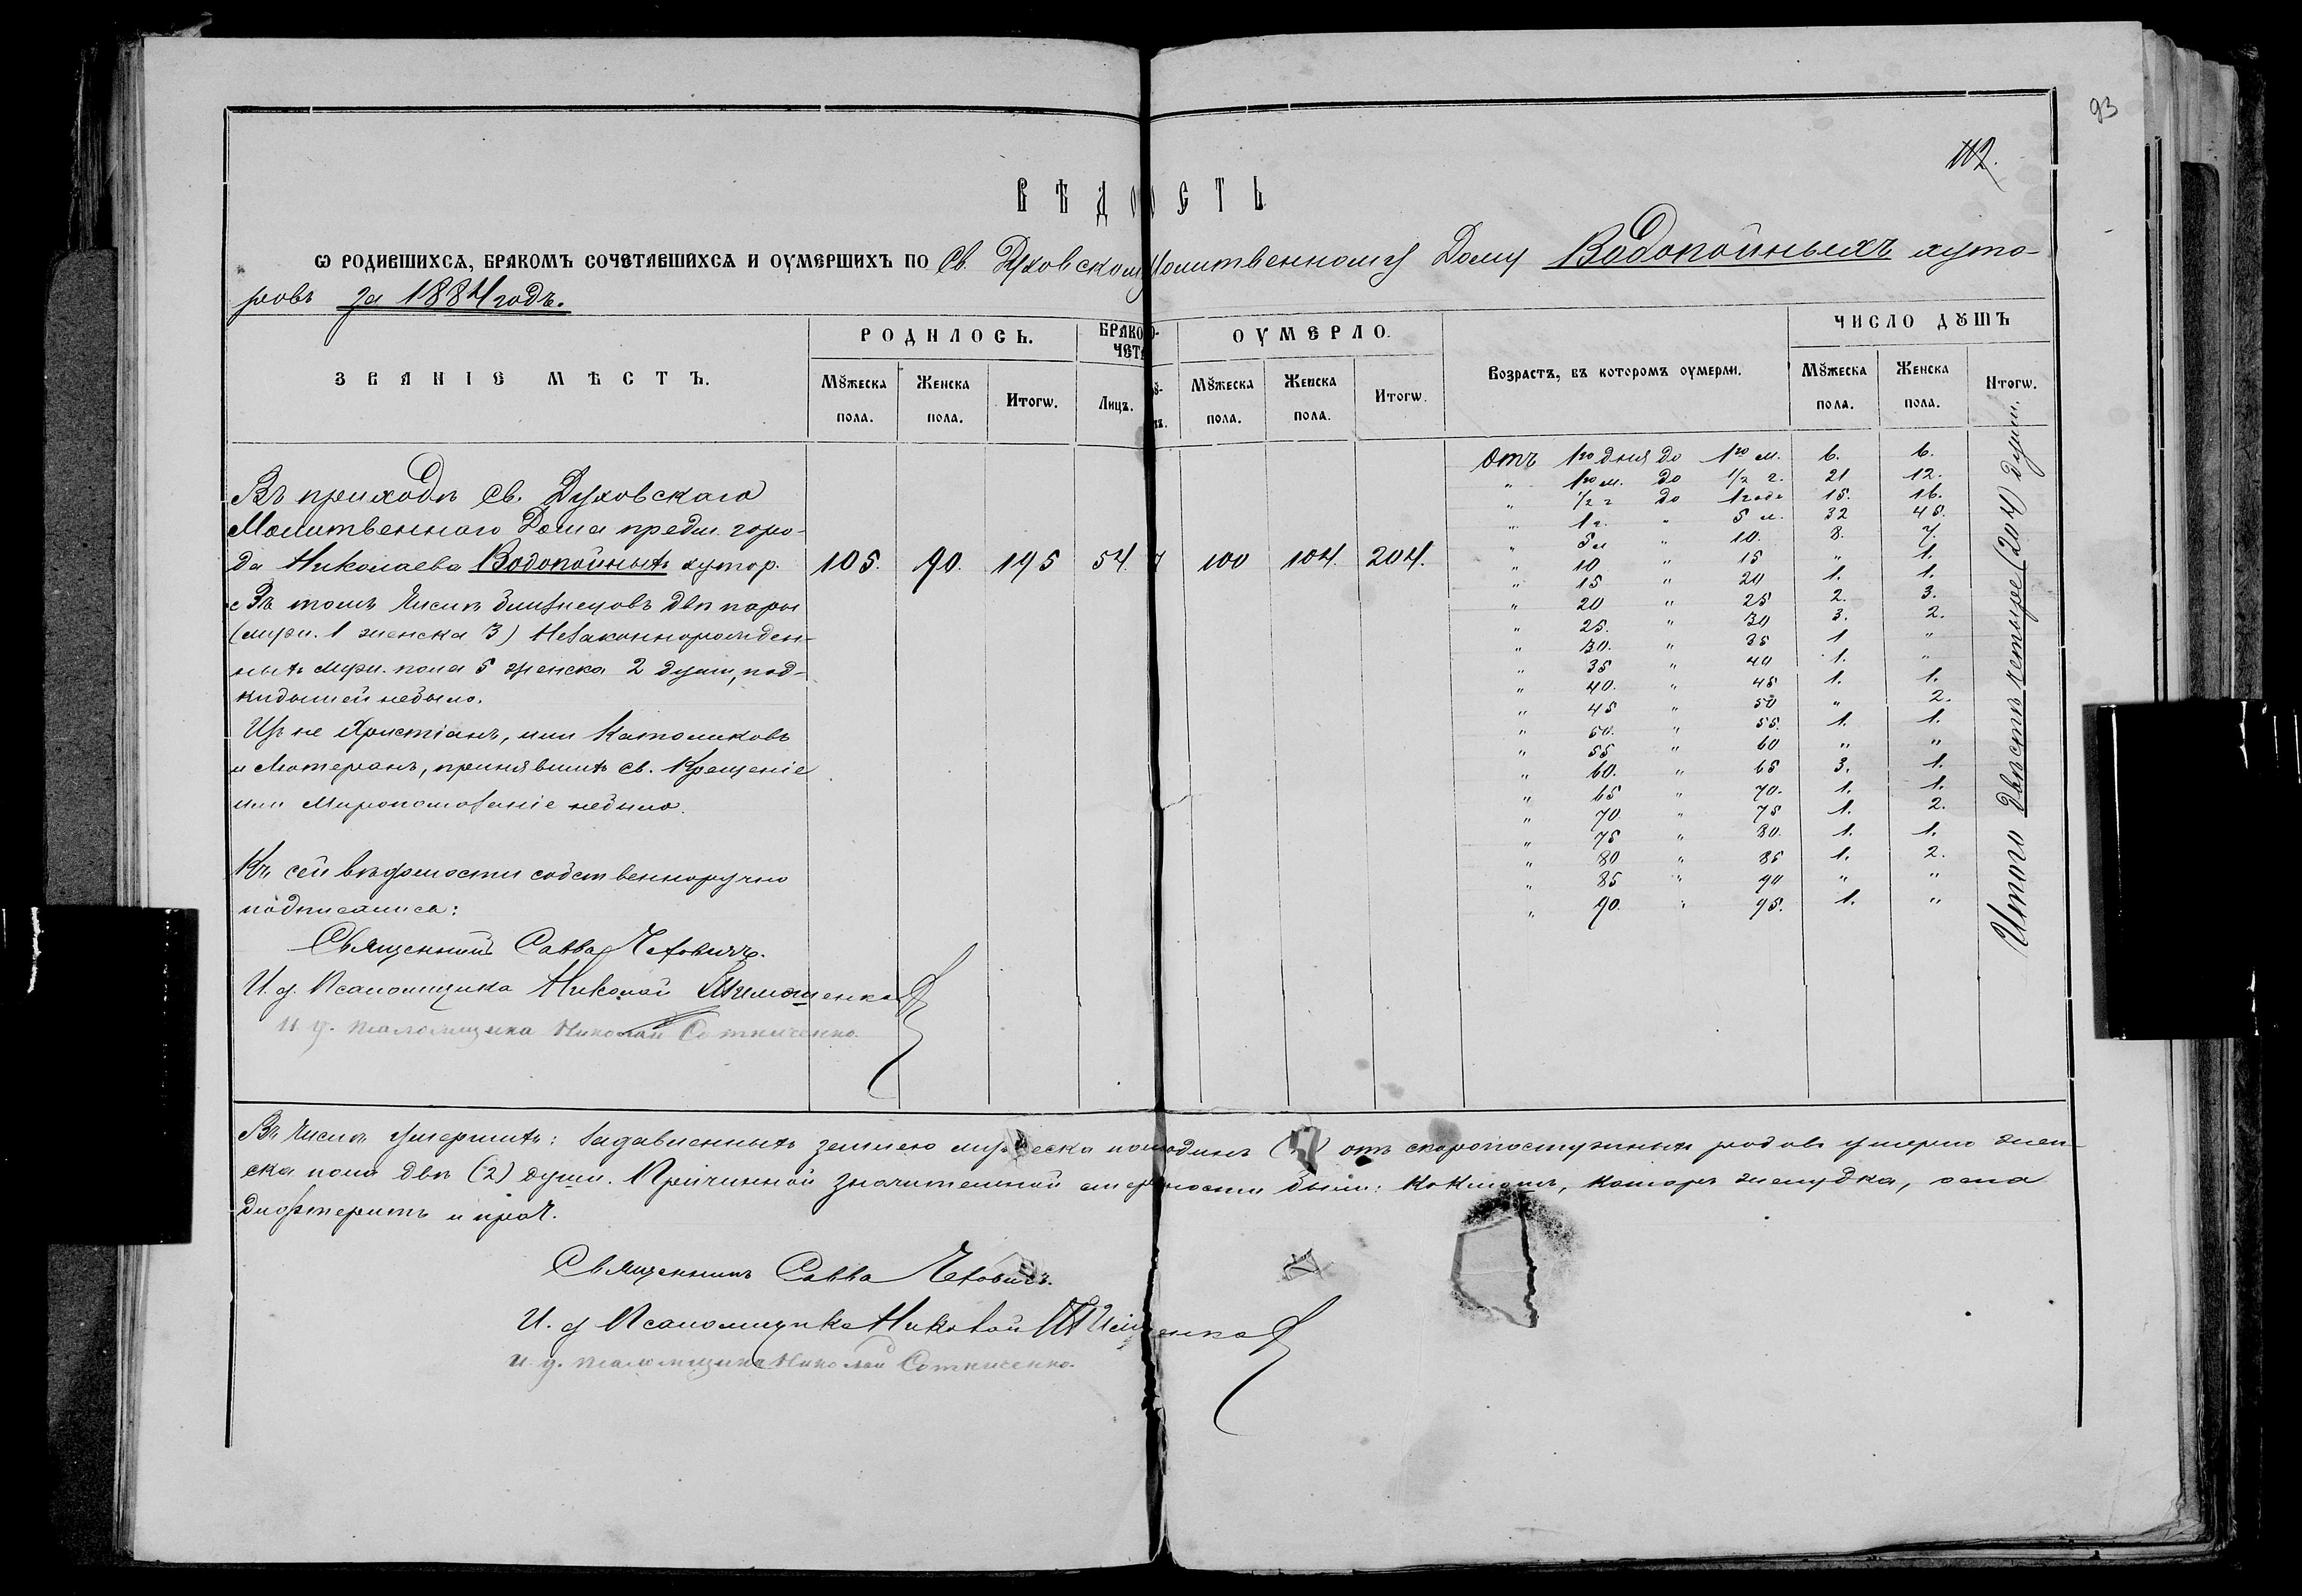 93
112.
ВѢДОМОСТЬ
Ѡ РОДИВШИХСѦ, БРАКОМЪ СОЧЕТАВШИХСѦ И ОУМЕРШИХЪ ПО Св. Духовскому Молитвенному Дому Водопойныхъ хуто-
ровъ за 1884 годъ.
ЗВАНІЕ МѢСТЪ.
РОДИЛОСЬ.
БРАКО
ЧЕТА
ОУМЕРЛО.
Возрастъ, въ которомъ оумерли.
ЧИСЛО ДꙊШЪ
Мꙋжеска пола.
Женска пола.
Итогѡ.
Лицъ.
Мꙋжеска пола.
Женска пола.
Итогѡ.
Мꙋжеска пола.
Женска пола.
Итогѡ.
Въ приходѣ Св. Духовскаго
Молитвеннаго Дома предм. горо-
да Николаева Водопойныхъ хутор. 105. 90. 195 54. 100 104. 204.
Въ томъ числѣ близнецовъ двѣ пары
(муж. 1 женска 3) Незаконнорожден-
ныхъ муж. пола 5 женска 2 души, под-
кидышей небыло.
Изъ не Христіанъ, или Католиковъ
и Лютеранъ, принявшихъ св. Крещеніе
или Миропомазаніе небыло.
Къ сей вѣдомости собственноручно
подписались:
Священникъ Савва
И. д. Псаломщика Николай Тимошенко
И. д. псаломщика Николай Сотниченко.
Отъ 1го дня до 1го м. 6. 6.
" 1го м. до 1/2 г. 21 12.
" 1/2 г до 1 года 15. 16.
" 1 г. " 5 л. 32 45.
" 5 л " 10. 8. 7.
" 10 " 15 " 1.
" 15 " 20 1. 1.
" 20 " 25 2. 3.
" 25. " 30 3. 2.
" 30. " 35 1 "
" 35 " 40 1. "
" 40. " 45 1. 1.
" 45 " 50 " 2.
" 50. " 55. 1. 1.
" 55 " 60 " "
" 60. " 65 3. 1.
" 65 " 70. 1. 1.
" 70 " 75 1. 2.
" 75 " 80. 1. 1.
" 80 " 85 1. 2.
" 85 " 90 " "
" 90. " 95. 1. "
Итого двѣсти четыре (204) души.
Въ числѣ умершихъ: задавленныхъ землею мужеска пола одинъ отъ скоропостижныхъ родовъ умерло жен-
ска пола двѣ (2) души. Причинной значительной смертности были: коклюшъ, катаръ желудка, оспа
дифтеритъ и проч.
Священникъ Савва
И. д Псаломщика Николай Тимошенко
И. д. псаломщика Николай Сотниченко.